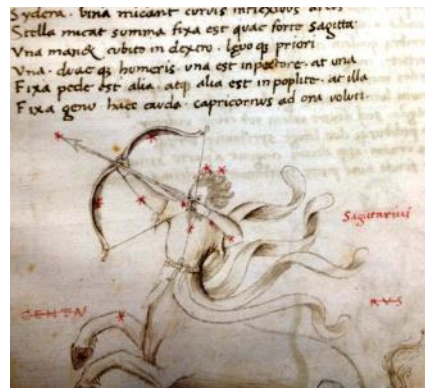 Sydera. bina micant curvis inflexibus
Stella micat summa fixa est quae forte sagitta.
Vna manet cubito in dextro.
priori
Vna. duae q; humeris. una est in pectore. at una
Fixa pede est alia. atq; alia est in poplite. at illa
Fixa genu haec cauda. capricornus ad ora voluti.
Sagittarius
CENTA
RVS